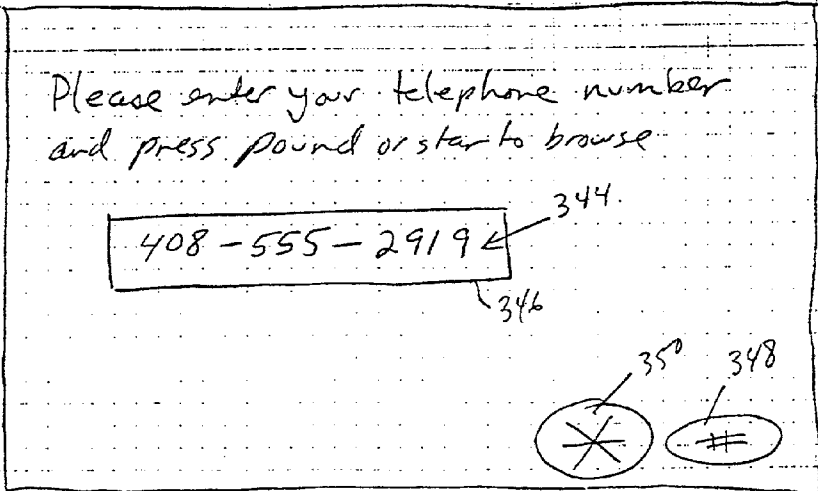 Please enter your telephone number
and press pound or star to browse
408-555-2919
344
346
350 348
* #